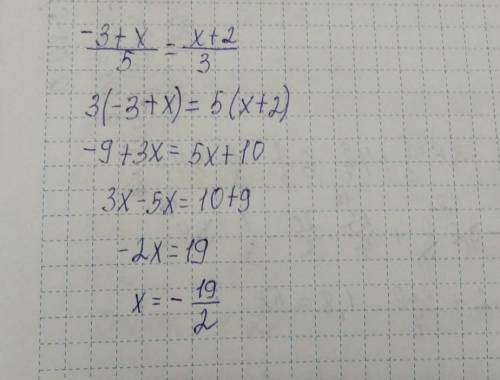 -3+x/5 = x+2/3
3(-3+x)= 5(x+2)
-9+3x= 5x+10
3x-5x=10+9
-2x=19
x=-19/2